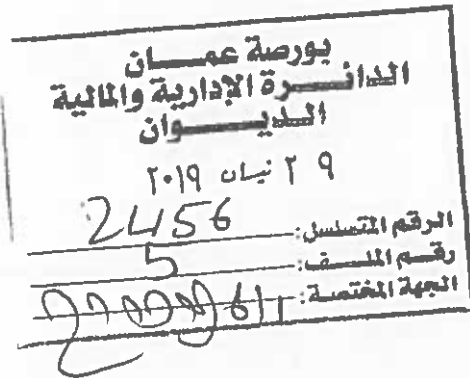 بورصة عمـــان
الدائـــرة الإدارية والمالية
الديـــــوان
٢٩ نيسان ٢٠١٩
الرقم المتسلسل: 2456
رقـــم الملـــف: 5
الجهة المختصة: